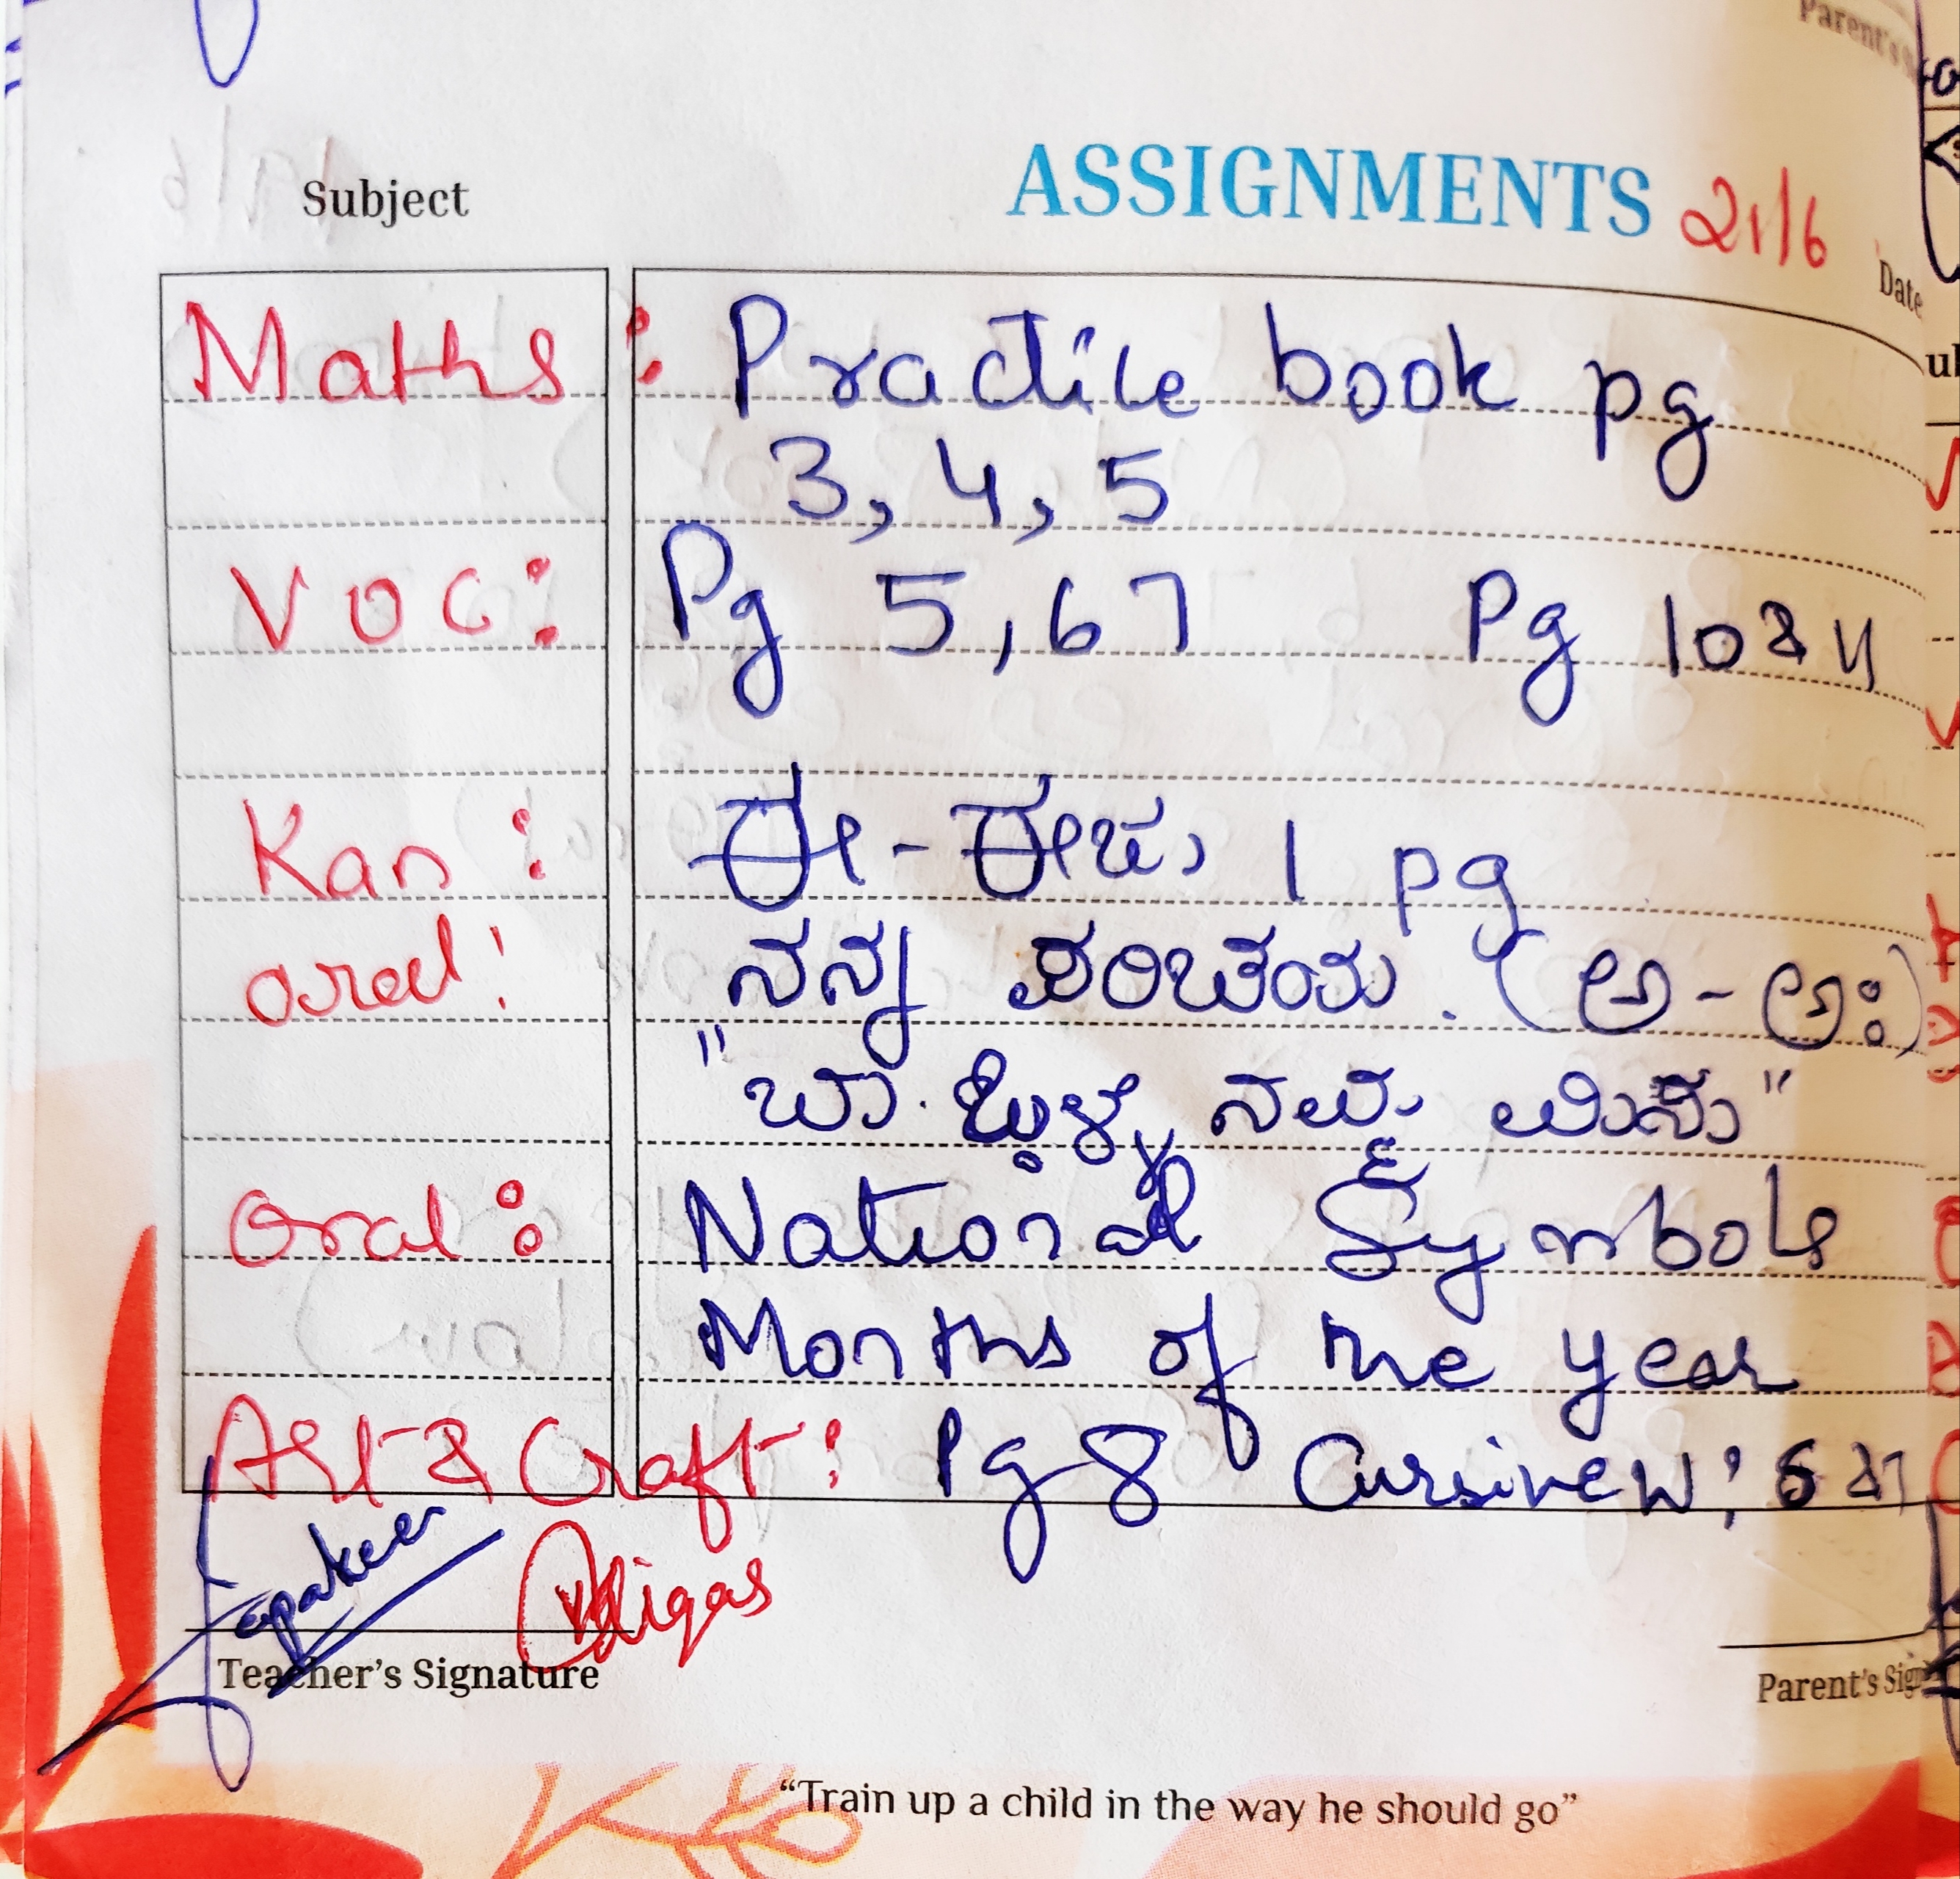 Subject ASSIGNMENTS 21/6
Date
Maths : Practice book pg
3, 4, 5
VOC : Pg 5, 6 7 Pg 10 & 11
Kan : ಈ - ಈಚು 1 pg
oral : ನನ್ನ ಪರಿಚಯ. (ಅ - ಅಃ)
"ಬಾ ನಮ್ಮ
Oral : National Symbols
Months of the year
Art & Craft : Pg 8 Cursive w;
Teacher's Signature
Parent's
"Train up a child in the way he should go"